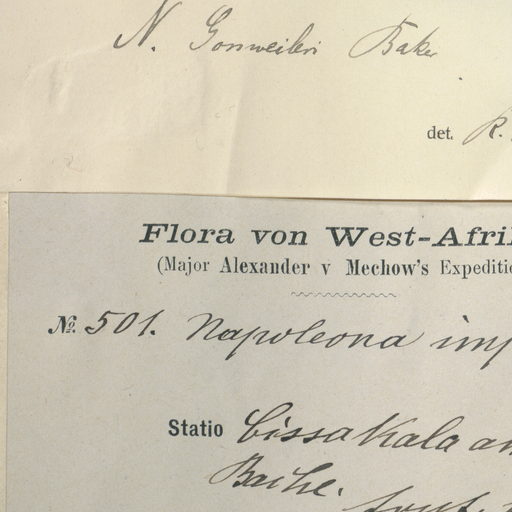 N. Gossweileri Baker
det. R.
Flora von West-Afri
(Major Alexander v Mechow's Expediti
№. 501. Napoleona imp
Statio Bissakala an